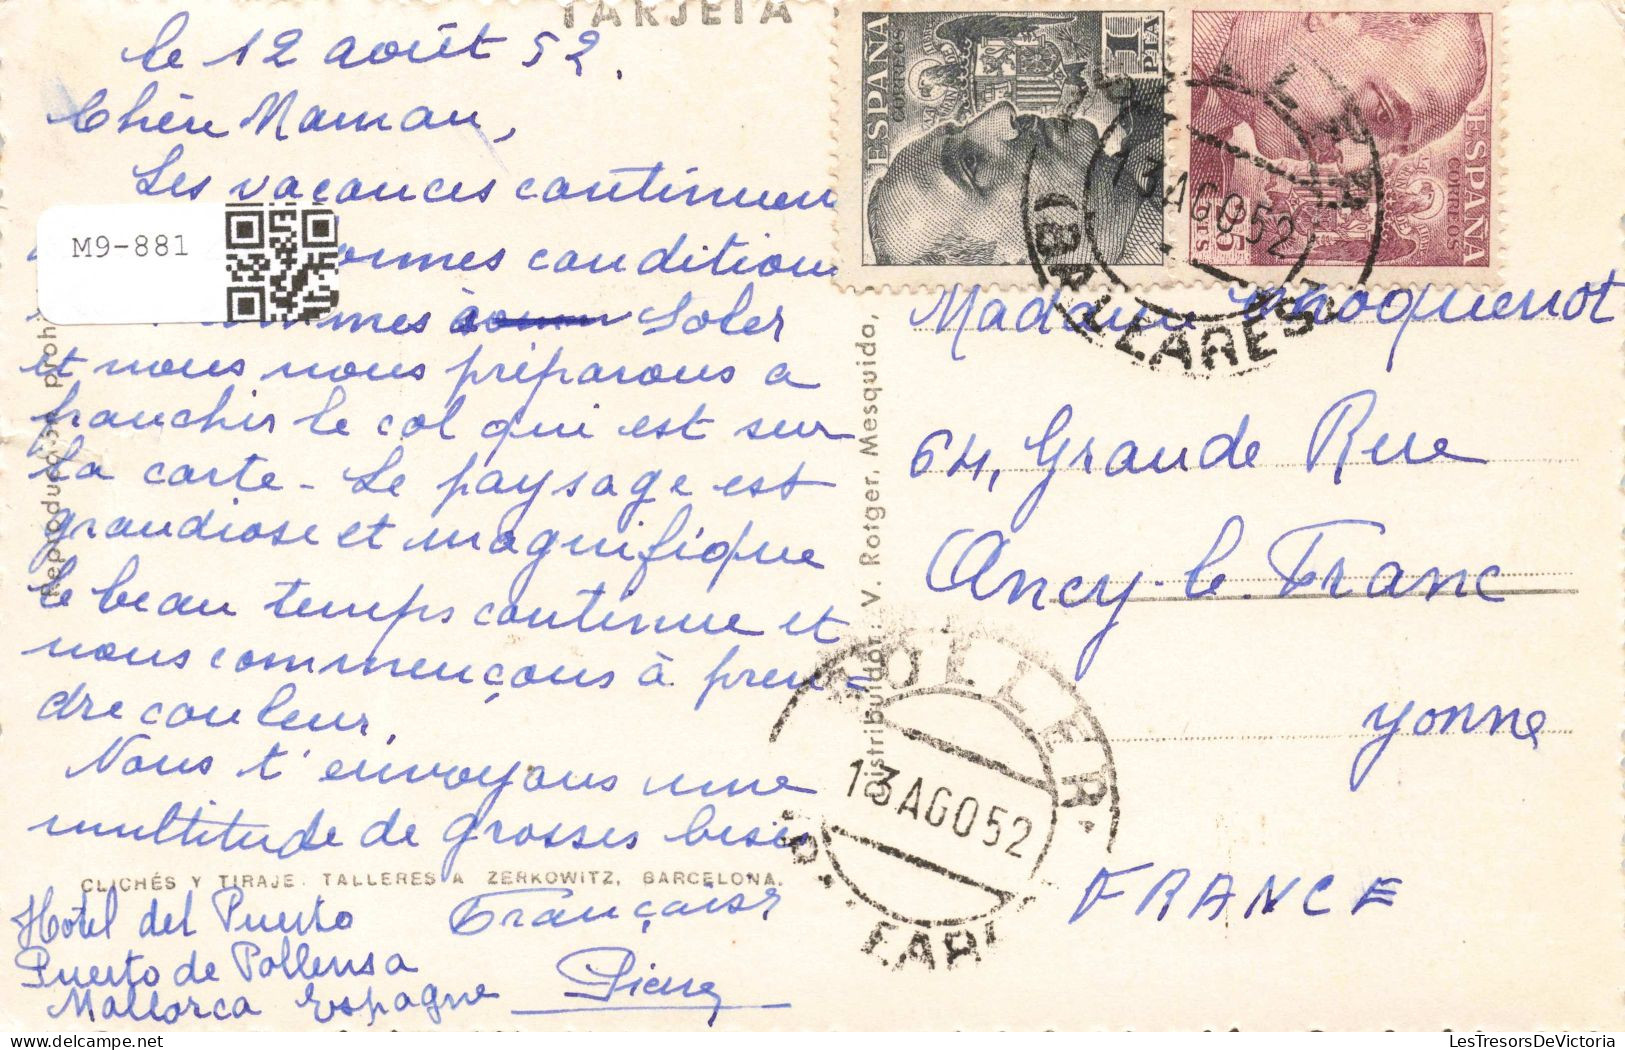 TARJETA
le 12 août 52.
Chère Maman,
Les vacances continuent
ormes condition
M9-881
mmes Soler
et nous nous préparons a
franchir le col qui est sur
la carte - Le paysage est
grandiose et magnifique
le beau temps continue et
nous commençons à pren=
dre couleur.
Nous t'envoyons une
multitude de grosses bises
CLICHÉS Y TIRAJE. TALLERES A ZERKOWITZ. BARCELONA.
Françoise
Pierre
Hotel del Puerto
Puerto de Pollensa
Mallorca Espagne
Reproduc prohi
Distribuidor: V. Rotger, Mesquida,
ESPAÑA
CORREOS
1 PTA
ESPAÑA
CORREOS
PTS
13 AGO 52
(BALEARES)
Madame Choquenot
64, Grande Rue
Ancy-le-Franc
Yonne
FRANCE
SOLLER
13 AGO 52
LesTresorsDeVictoria.com